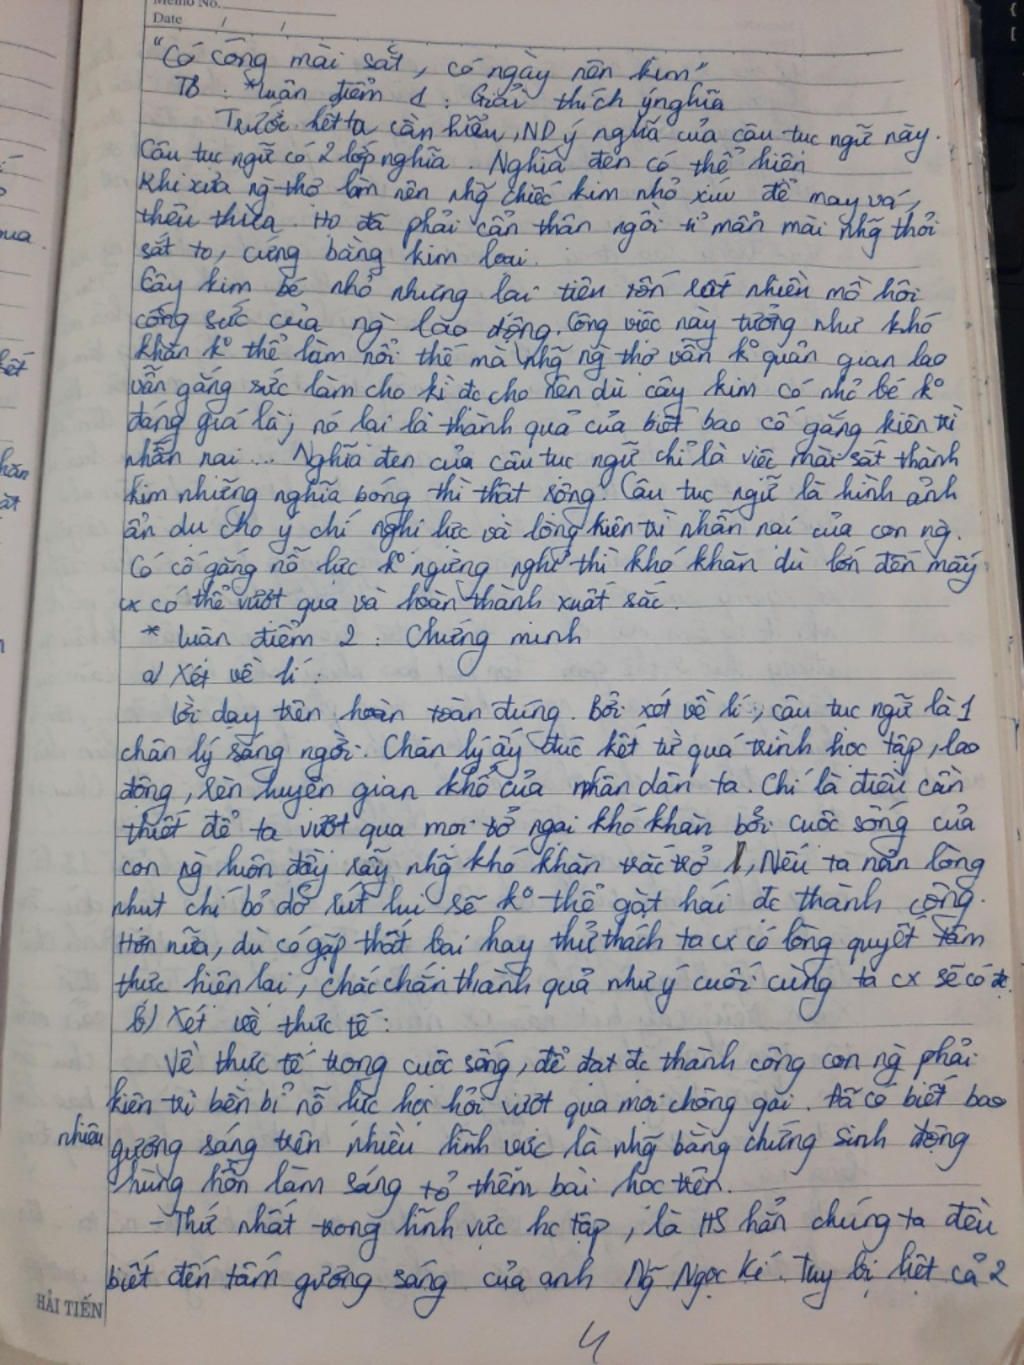 Memo No.
Date / /
"Có công mài sắt, có ngày nên kim"
TB: *Luận điểm 1: Giải thích ý nghĩa
Trước hết ta cần hiểu, ND ý nghĩa của câu tục ngữ này.
Câu tục ngữ có 2 lớp nghĩa. Nghĩa đen có thể hiện
Khi xưa ng thợ làm nên nhg chiếc kim nhỏ xíu để may vá,
thêu thùa. Họ đã phải cẩn thận ngồi tỉ mẩn mài nhg thỏi
sắt to, cứng bằng kim loại.
Cây kim bé nhỏ nhưng lại tiêu tốn rất nhiều mồ hôi
công sức của ng lao động. Công việc này tưởng như khó
khăn k° thể làm nổi thế mà nhg ng thợ vẫn k° quản gian lao
vẫn gắng sức làm cho kì đc cho nên dù cây kim có nhỏ bé k°
đáng giá là; nó lại là thành quả của biết bao cố gắng kiên trì
nhẫn nại... Nghĩa đen của câu tục ngữ chỉ là việc mài sắt thành
kim nhưng nghĩa bóng thì thật rộng. Câu tục ngữ là hình ảnh
ẩn dụ cho ý chí nghị lực và lòng kiên trì nhẫn nại của con ng.
Có cố gắng nỗ lực k° ngừng nghỉ thì khó khăn dù lớn đến mấy
cx có thể vượt qua và hoàn thành xuất sắc.
* Luận điểm 2: Chứng minh
a) Xét về lí:
Lời dạy trên hoàn toàn đúng. Bởi xét về lí, câu tục ngữ là 1
chân lý sáng ngời. Chân lý ấy đúc kết từ quá trình học tập, lao
động, rèn luyện gian khổ của nhân dân ta. Chí là điều cần
thiết để ta vượt qua mọi trở ngại khó khăn bởi cuộc sống của
con ng luôn đầy rẫy nhg khó khăn trắc trở, Nếu ta nản lòng
nhụt chí bỏ dở rút lui sẽ k° thể gặt hái đc thành công.
Hơn nữa, dù có gặp thất bại hay thử thách ta cx có lòng quyết tâm
thực hiện lại, chắc chắn thành quả như ý cuối cùng ta cx sẽ có đc.
b) Xét về thực tế:
Về thực tế trong cuộc sống, để đạt đc thành công con ng phải
kiên trì bền bỉ nỗ lực học hỏi vượt qua mọi chông gai. Đã có biết bao
nhiêu gương sáng trên nhiều lĩnh vực là nhg bằng chứng sinh động
hùng hồn làm sáng tỏ thêm bài học trên.
- Thứ nhất trong lĩnh vực hc tập, là HS hẳn chúng ta đều
biết đến tấm gương sáng của anh Ng Ngọc Kí. Tuy bị liệt cả 2
HẢI TIẾN
4